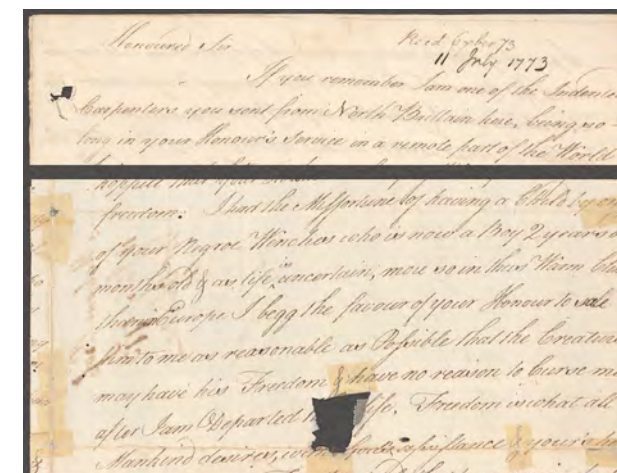 Honoured Sir
Recd 6 7ber 73
11 July 1773
If you remember I am one of the Indente
Carpenters you sent from North Brittain here, being so
long in your Honour's Service in a remote part of the World
freedom: I had the Missfortune of having a Child by on
of your Negroe Winches who is now a Boy 2 years o
months old & as life is uncertain, more so in this Warm Cli
than in Europe I begg the favour of your Honour to sale
him to me as reasonable as Possible that the Creature
may have his Freedom & have no reason to Curse me
after I am Departed life, Freedom is what all
Mankind desires, assistance & your's